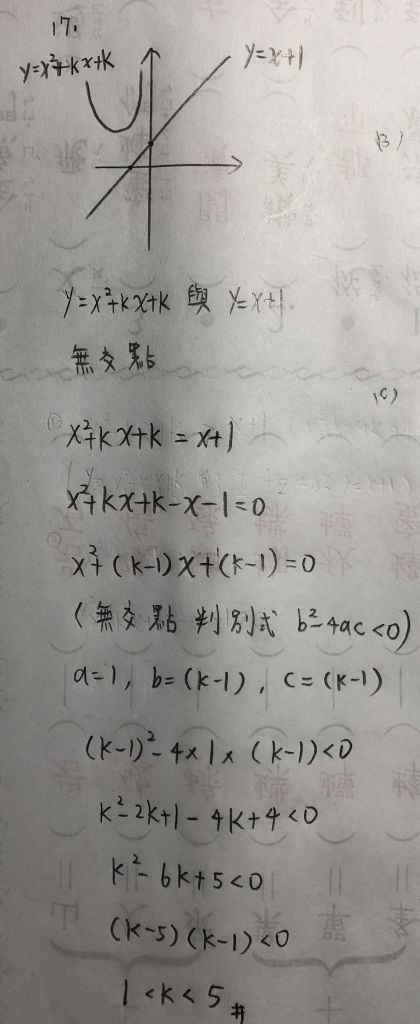 17.
y=x²+kx+k
y=x+1
(B)
y=x²+kx+k 與 y=x+1
無交點
(C)
x²+kx+k=x+1
x²+kx+k-x-1=0
x²+(k-1)x+(k-1)=0
(無交點 判別式 b²-4ac<0)
a=1, b=(k-1), c=(k-1)
(k-1)²-4×1×(k-1)<0
k²-2k+1-4k+4<0
k²-6k+5<0
(k-5)(k-1)<0
1<k<5 #